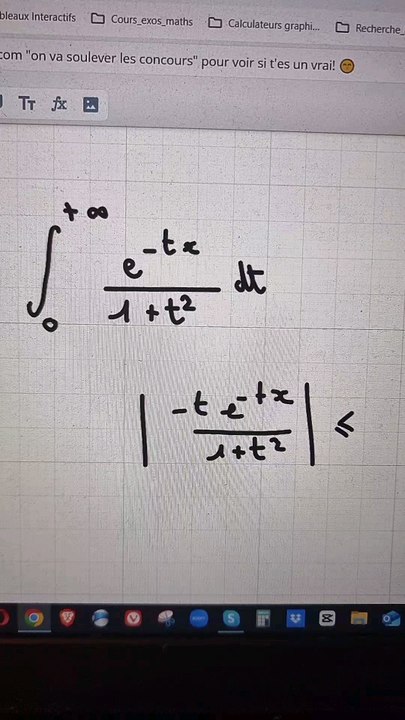 bleaux Interactifs Cours_exos_maths Calculateurs graphi... Recherche_
com "on va soulever les concours" pour voir si t'es un vrai! 😁
TT fx
∫₀^{+∞} e^{-tx}/(1+t²) dt
| -t e^{-tx}/(1+t²) | ≤